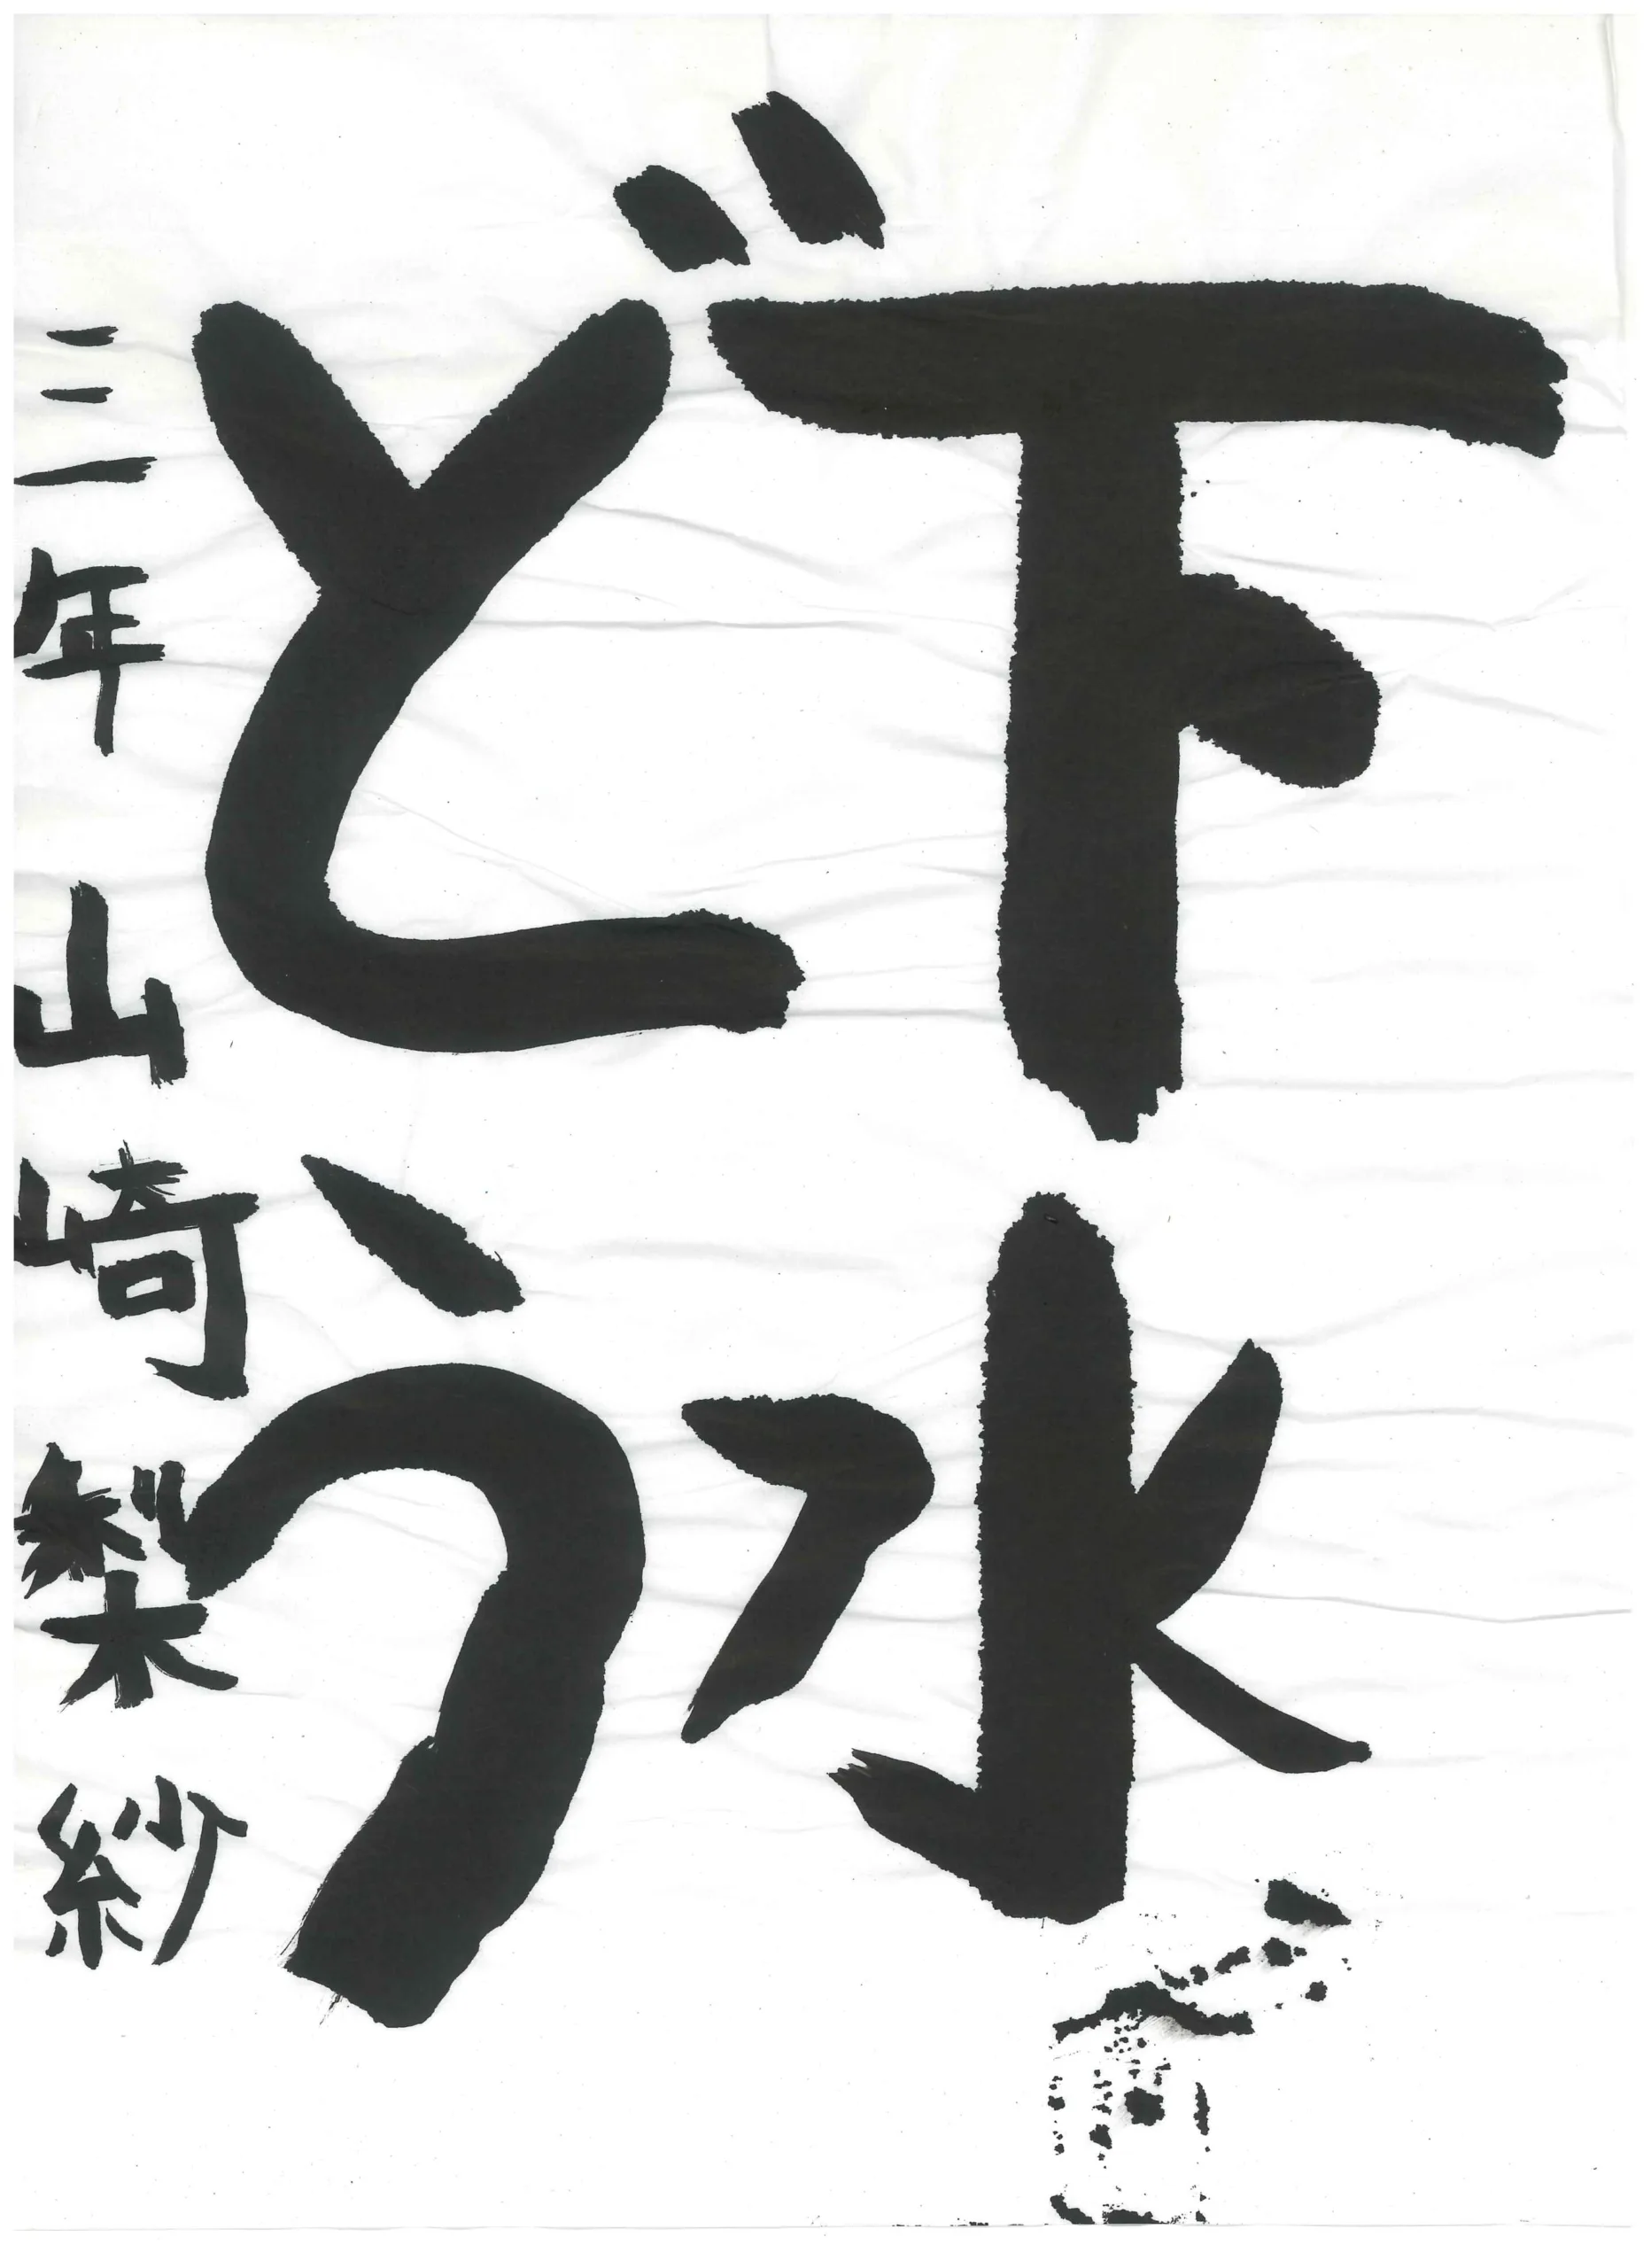 下水
どう
三年 山崎梨紗